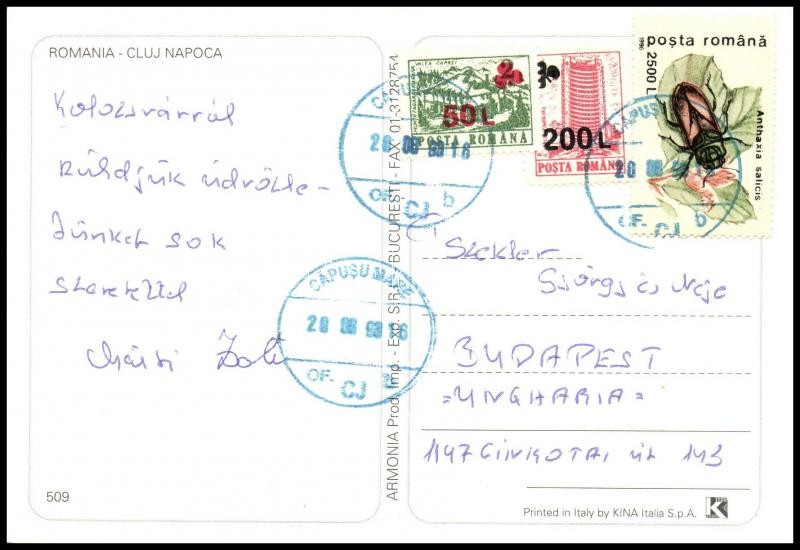 ROMANIA - CLUJ NAPOCA
Kolozsvárról
küldjük üdvözle-
tünket sok
szeretettel
Márti Zoli
509
ARMONIA Prod. Imp. - Exp. S.R.L. - BUCUREȘTI - FAX 01-3128754
VALEA CAPREI
2
50 L
POSTA ROMÂNA
200 L
POSTA ROMÂNA
poşta română
1996
2500 L
Anthaxia salicis
CĂPUȘU
20 08 98 16
OF. CJ b
CĂPUȘU
20 08 98
OF. CJ b
CĂPUȘU MARE
20 08 98 16
OF. CJ
Szekler
György és Neje
BUDAPEST
= UNGHARIA =
1147 CINKOTAI út 143
Printed in Italy by KINA Italia S.p.A.
K